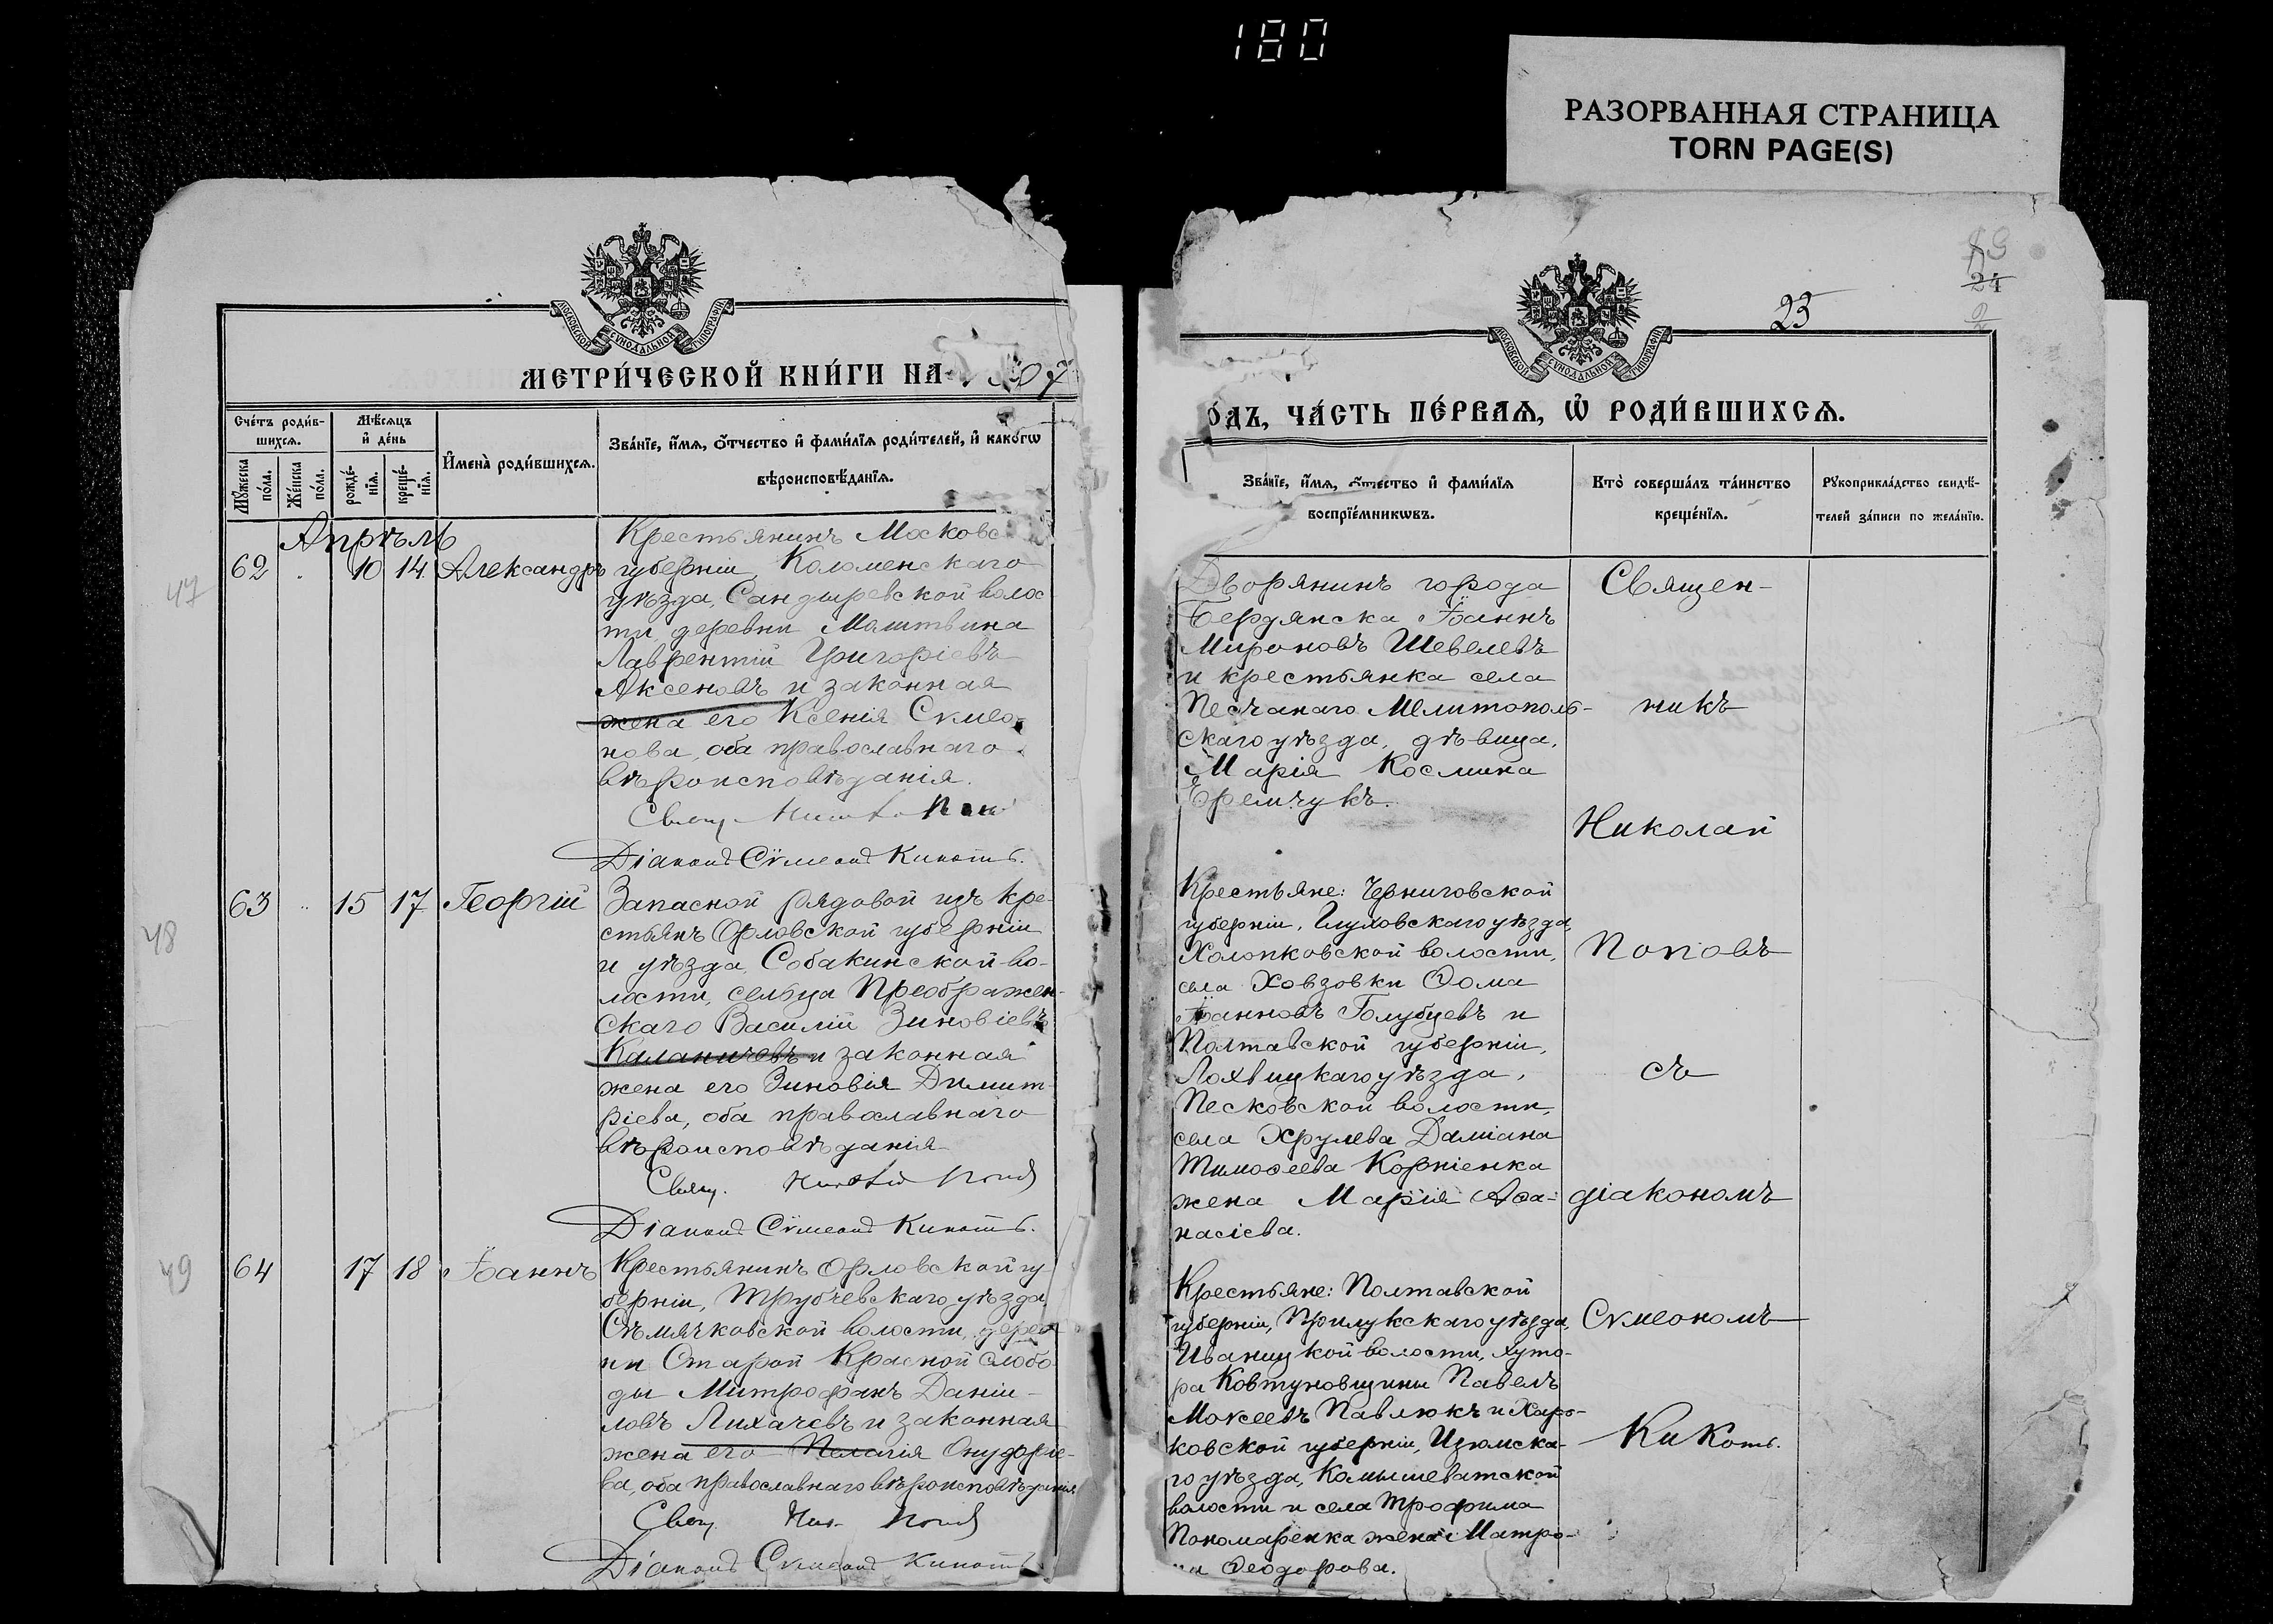 180
РАЗОРВАННАЯ СТРАНИЦА
TORN PAGE(S)
МОСКОВСКОЙ СѴНОДАЛЬНОЙ ТИПОГРАФІИ
МЕТРИ́ЧЕСКОЙ КНИ́ГИ НА 1907
Сче́тъ роди́в-
шихсѧ.
Мꙋ́жеска по́ла.
Же́нска по́ла.
Мѣ́сѧцъ
и҆ де́нь
рожде́-
нїѧ.
креще́-
нїѧ.
И҆мена̀ роди́вшихсѧ.
Зва́нїе, и҆́мѧ, ѻ҆́тчество и҆ фами́лїѧ роди́телей, и҆ како́гѡ
вѣроисповѣ́данїѧ.
Апрѣль
47
62 10 14 Александръ
Крестьянинъ Московс
губерніи, Коломенскаго
уѣзда, Сандыревской волос
ти, деревни Молитвина
Лаврентій Григоріевъ
Аксеновъ и законная
жена его Ксенія Сѵмео-
нова, оба православнаго
вѣроисповѣданія.
Свящ.
Діаконъ Сѵмеонъ Кикоть.
48
63 15 17 Георгій
Запасной рядовой изъ кре-
стьянъ Орловской губерніи
и уѣзда, Собакинской во-
лости, сельца Преображен-
скаго Василій Зиновіевъ
Каланичевъ и законная
жена его Зиновія Димит-
ріева, оба православнаго
вѣроисповѣданія
Свящ. Николай Поповъ
Діаконъ Сѵмеонъ Кикоть.
49
64 17 18 Іоаннъ
Крестьянинъ Орловской гу-
берніи, Трубчевскаго уѣзда,
Сѣмячковской волости, дерев
ни Старой Красной Слобо-
ды Митрофанъ Даніи-
ловъ Лихачевъ и законная
жена его Пелагія Онуфріе-
ва, оба православнаго вѣроисповѣданія.
Свящ. Ник. Поповъ
Діаконъ Сѵмеонъ Кикоть
25
24
МОСКОВСКОЙ СѴНОДАЛЬНОЙ ТИПОГРАФІИ
о́дъ, ЧА́СТЬ ПЕ́РВАѦ, Ѡ҆ РОДИ́ВШИХСѦ.
Зва́нїе, и҆́мѧ, ѻ҆́тчество и҆ фами́лїѧ
воспрїе́мникѡвъ.
Кто̀ соверша́лъ та́инство
креще́нїѧ.
Рꙋкоприкла́дство свидѣ́-
телей за́писи по жела́нїю.
Дворянинъ города
Бердянска Іоаннъ
Мироновъ Шевелевъ
и крестьянка села
Песчанаго Мелитополь-
скаго уѣзда, дѣвица,
Марія Космина
Еремчукъ.
Крестьяне: Черниговской
губерніи, Глуховскаго уѣзда,
Холопковской волости,
села Ховзовки Ѳома
Іоанновъ Голубцевъ и
Полтавской губерніи,
Лохвицкаго уѣзда,
Песковской волости,
села Хрулева Даміана
Тимоѳеева Корніенка
жена Марія Аѳа-
насіева.
Крестьяне: Полтавской
губерніи, Прилукскаго уѣзда,
Иваницкой волости, хуто-
ра Ковтуновщины Павелъ
Моѵсеевъ Павлюкъ и Харь-
ковской губерніи, Изюмска-
го уѣзда, Камышеватской
волости и села Трофима
Пономаренка жена Матро-
на Ѳеодорова.
Священ-
никъ
Николай
Поповъ
съ
діакономъ
Сѵмеономъ
Кикоть.